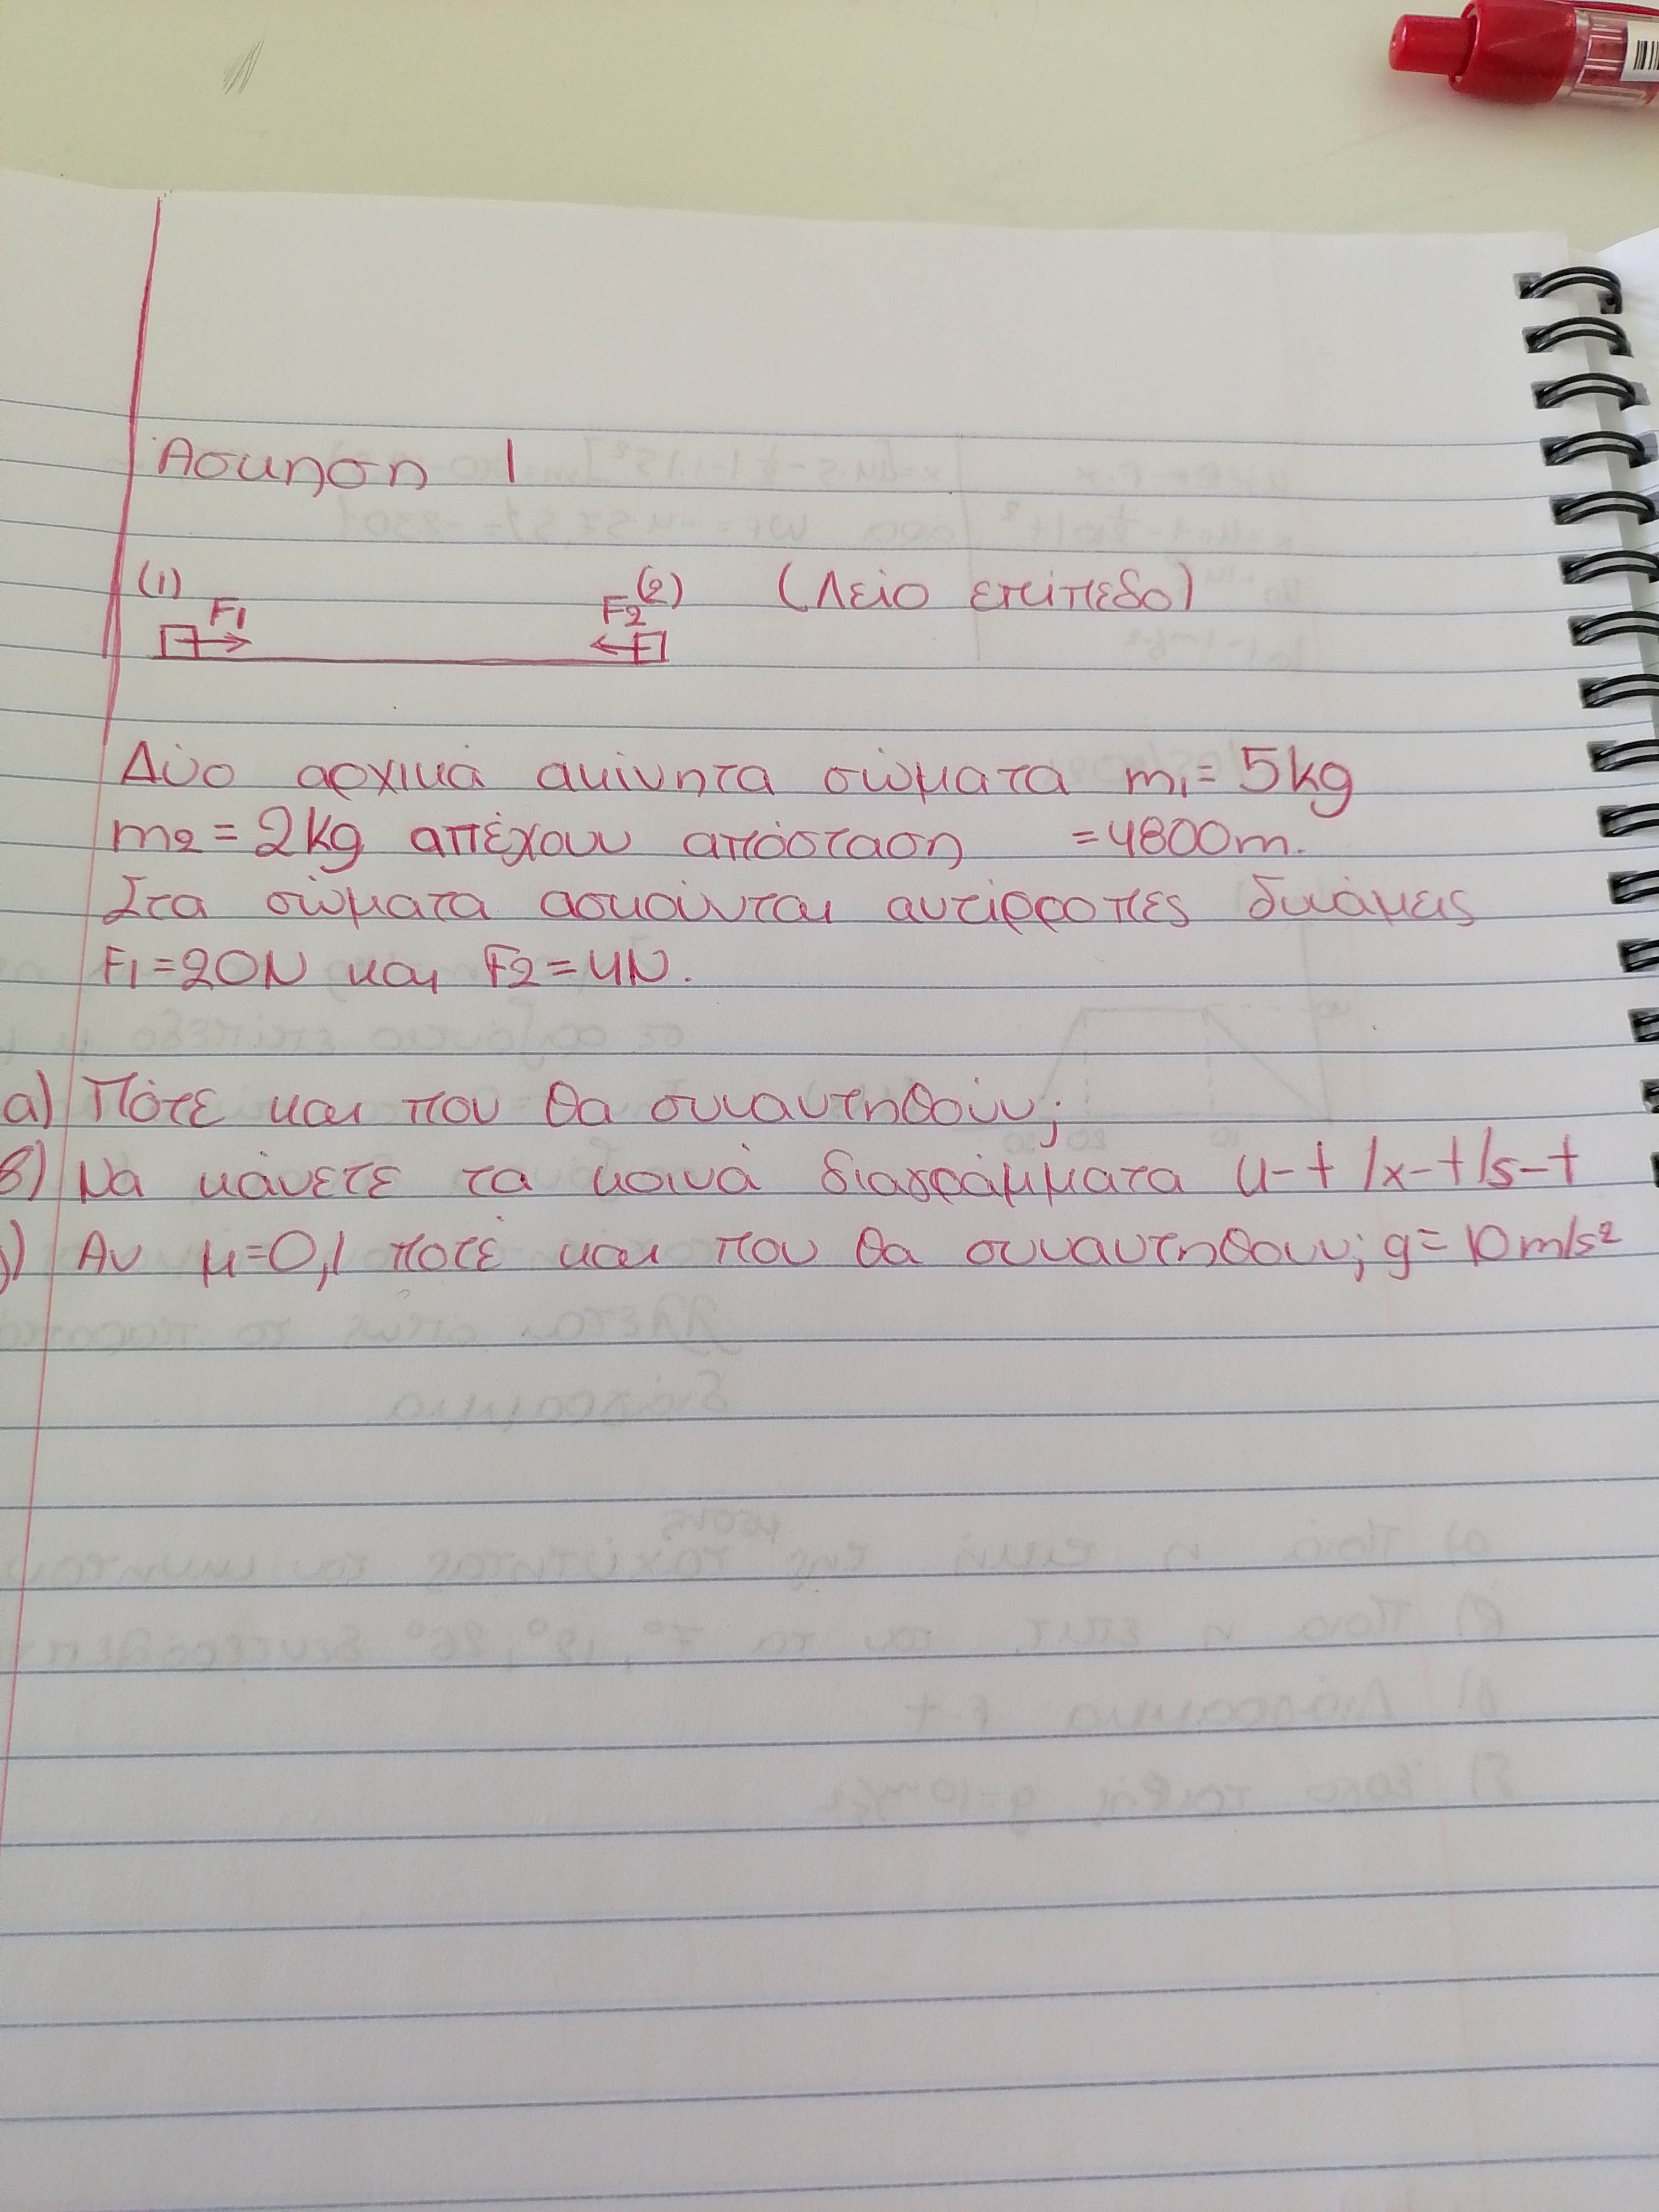 Άσκηση 1
(1) (2) (Λείο επίπεδο)
F1 F2
Δύο αρχικά ακίνητα σώματα m1=5kg
m2=2kg απέχουν απόσταση =4800m.
Στα σώματα ασκούνται αντίρροπες δυνάμεις
F1=20N και F2=4N.
α) Πότε και που θα συναντηθούν;
β) Να κάνετε τα κοινά διαγράμματα υ-t/x-t/s-t
) Αν μ=0,1 ποτέ και που θα συναντηθουν; g=10m/s²